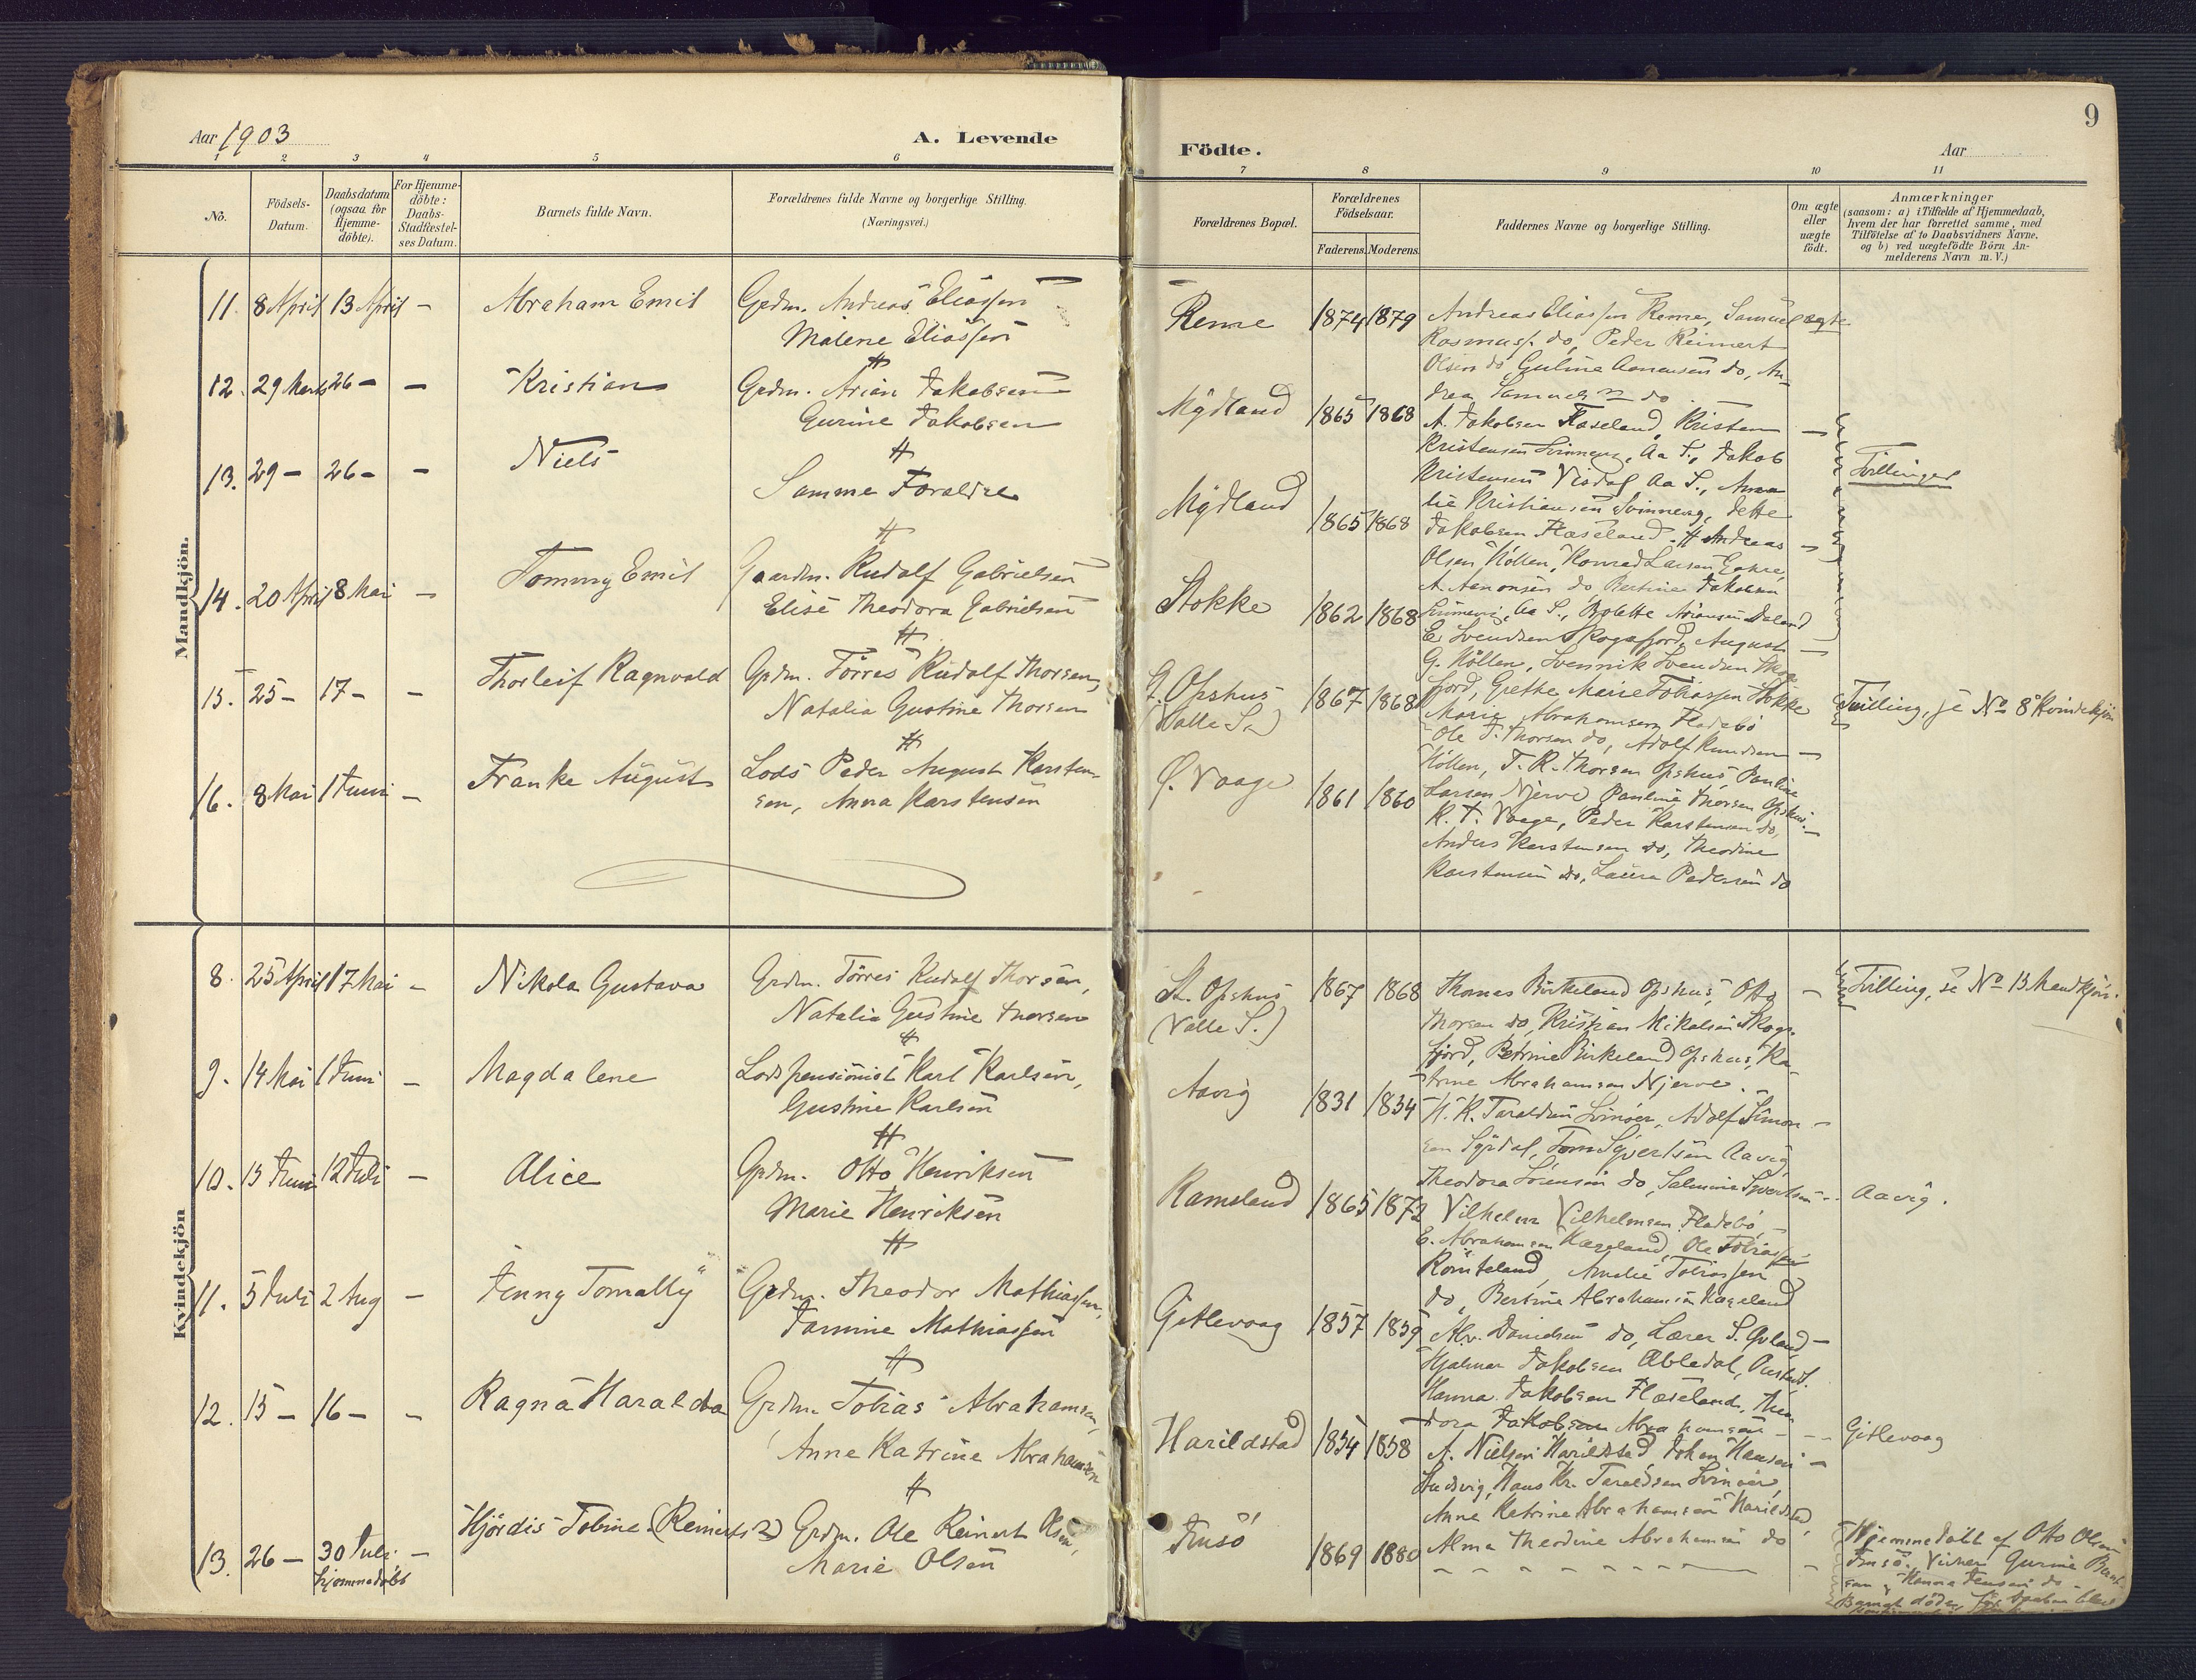 9
Aar 1903
A. Levende
Födte.
Aar
1 2 3 4 5 6 7 8 9 10 11
No.
Födsels-
Datum.
Daabsdatum
(ogsaa for
Hjemme-
döbte).
For Hjemme-
döbte:
Daabs-
Stadfæstel-
ses Datum.
Barnets fulde Navn.
Forældrenes fulde Navne og borgerlige Stilling.
(Næringsvei.)
Forældrenes Bopæl.
Forældrenes
Födselsaar.
Faderens. Moderens.
Faddernes Navne og borgerlige Stilling.
Om ægte
eller
uægte
födt.
Anmærkninger
(saasom: a) i Tilfælde af Hjemmedaab,
hvem der har forrettet samme, med
Tilföielse af to Daabsvidners Navne,
og b) ved uægtefödte Börn An-
melderens Navn m. V.)
Mandkjön.
11. 8 April 13 April - Abraham Emil Grdm. Andreas Eliassen
Malene Eliassen
Reme 1874 1879 Andreas Eliassen Reme, Samuel ægte
Rasmuss. do, Peder Reimert
Olsen do, Guline Aanensen do, An-
drea Samuels do
12. 29 Marts 26 - - Kristian Grdm. Arian Jakobsen
Gurine Jakobsen
Mydland 1865 1868 A. Jakobsen Flaseland, Kristen -
Kristensen Svinneng, Aa S., Jakob
13. 29 - 26 - - Niels
Samme Foraldre
Mydland 1865 1868
Kristensen Visdal Aa S.,
Kristiansen Svinneng, Jette
Jakobsen Flaseland. # Andreas -
Tvillinger
14. 20 April 8 Mai - Tommy Emil Gaardm. Rudolf Gabrielsen
Elise Theodora Gabrielsen
Stokke 1862 1868
Olsen Höllen, Konrad Larsen
A. Aanonsen do Bertine Jakobsen
Aa S., Bolette Ariansen Daland
E. Svendsen Skogsfjord, August -
G. Höllen, Svennik Svendsen Skogs-
fjord, Grethe Marie Tobiassen Stokke
15. 25 - 17 - - Thorleif Ragnvald Grdm. Törres Rudolf Thorsen,
Natalia Gustine Thorsen
Opshus
(Valle S.)
1867 1868
Marie Abrahamsen Fladebö
Ole T. Thorsen do, Adolf Knudsen -
Höllen, T. R. Thorsen Opshus, Pauline
Larsen Njerve Pauline Thorsen Opshus.
Tvilling, se No 8 Kvindekjön
16. 8 Mai 1 Juni - Franke August Lods Peder August Karsten-
sen, Anna Karstensen
Ö. Vaage 1861 1860
K. T. Vaage, Peder Karstensen do, -
Anders Karstensen do, Theodine
Karstensen do, Laura Pedersen do
Kvindekjön
8. 25 April 17 Mai - Nikola Gustava Grdm. Törres Rudolf Thorsen,
Natalia Gustine Thorsen
St. Opshus
(Valle S.)
1867 1868 Thomas Birkeland Opshus, Otto -
Thorsen do, Kristian Mikalsen Skogs-
fjord, Petrine Birkeland Opshus, Ka-
trine Abrahamsen Njerve.
Tvilling, se No 15 Mandkjön.
9. 14 Mai 1 Juni - Magdalene Lodspensionist Karl Karlsen,
Gustine Karlsen
Aavig 1831 1834
H. K. Taraldsen Svinöer, Adolf Simon- -
sen Syrdal, Tom Syvertsen Aavig
Theodora Sörensen do, Salmine Syvertsen -- Aavig.
10. 15 Juni 12 Juli - Alice Grdm. Otto Henriksen
Marie Henriksen
Rameland 1865 1872 Vilhelm Vilhelmsen Fladebö -
E. Abrahamsen Kageland, Ole Tobiassen
Römteland, Amalie Tobiassen
do, Bertine Abrahamsen Kageland
11. 5 Juli 2 Aug - Jenny Tomally Grdm. Theodor Mathiassen,
Jarmine Mathiassen
Gitlevaag 1857 1859 Alv. Danielsen do, Lærer S. Qvland -
Hjalmar Jakobsen Æbledal,
Hanna Jakobsen Flaseland, Theo-
dora Jakobsen Abrahamsen -- Gitlevaag
12. 15 - 16 - - Ragna Haralda Grdm. Tobias Abrahamsen,
Anne Katrine Abrahamsen
Harildstad 1854 1858 A. Nielsen Harildstad, Johan Hansen -
Ludvig, Hans Kr. Taraldsen Svinöer,
Anne Katrine Abrahamsen Harildstad,
Alma Theodine Abrahamsen do
13. 26 - 30 Juli -
hjemmedöbt
Hjördis Tobine (Reinerts) Grdm. Ole Reinert Olsen,
Marie Olsen
Fusö 1869 1880
Hjemmedöbt af Otto Olsen
Fusö. Vidner Gurine Bernt-
sen og Hanna Jensen do -
Barnet döde